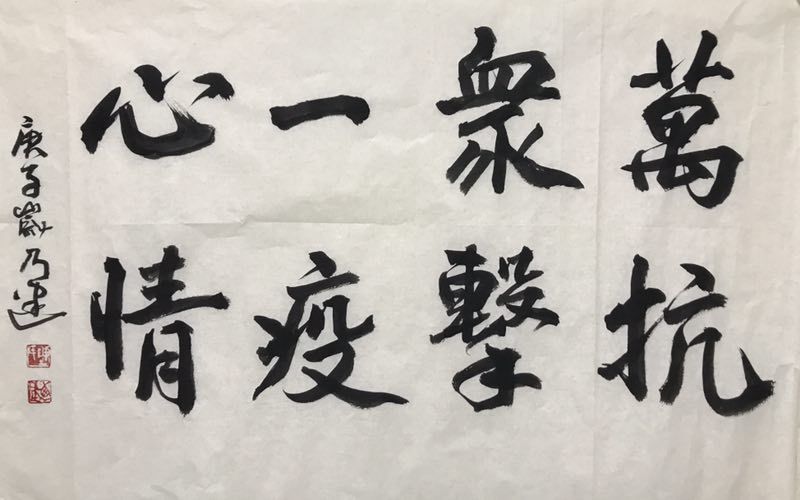 萬衆一心
抗擊疫情
庚子歲乃